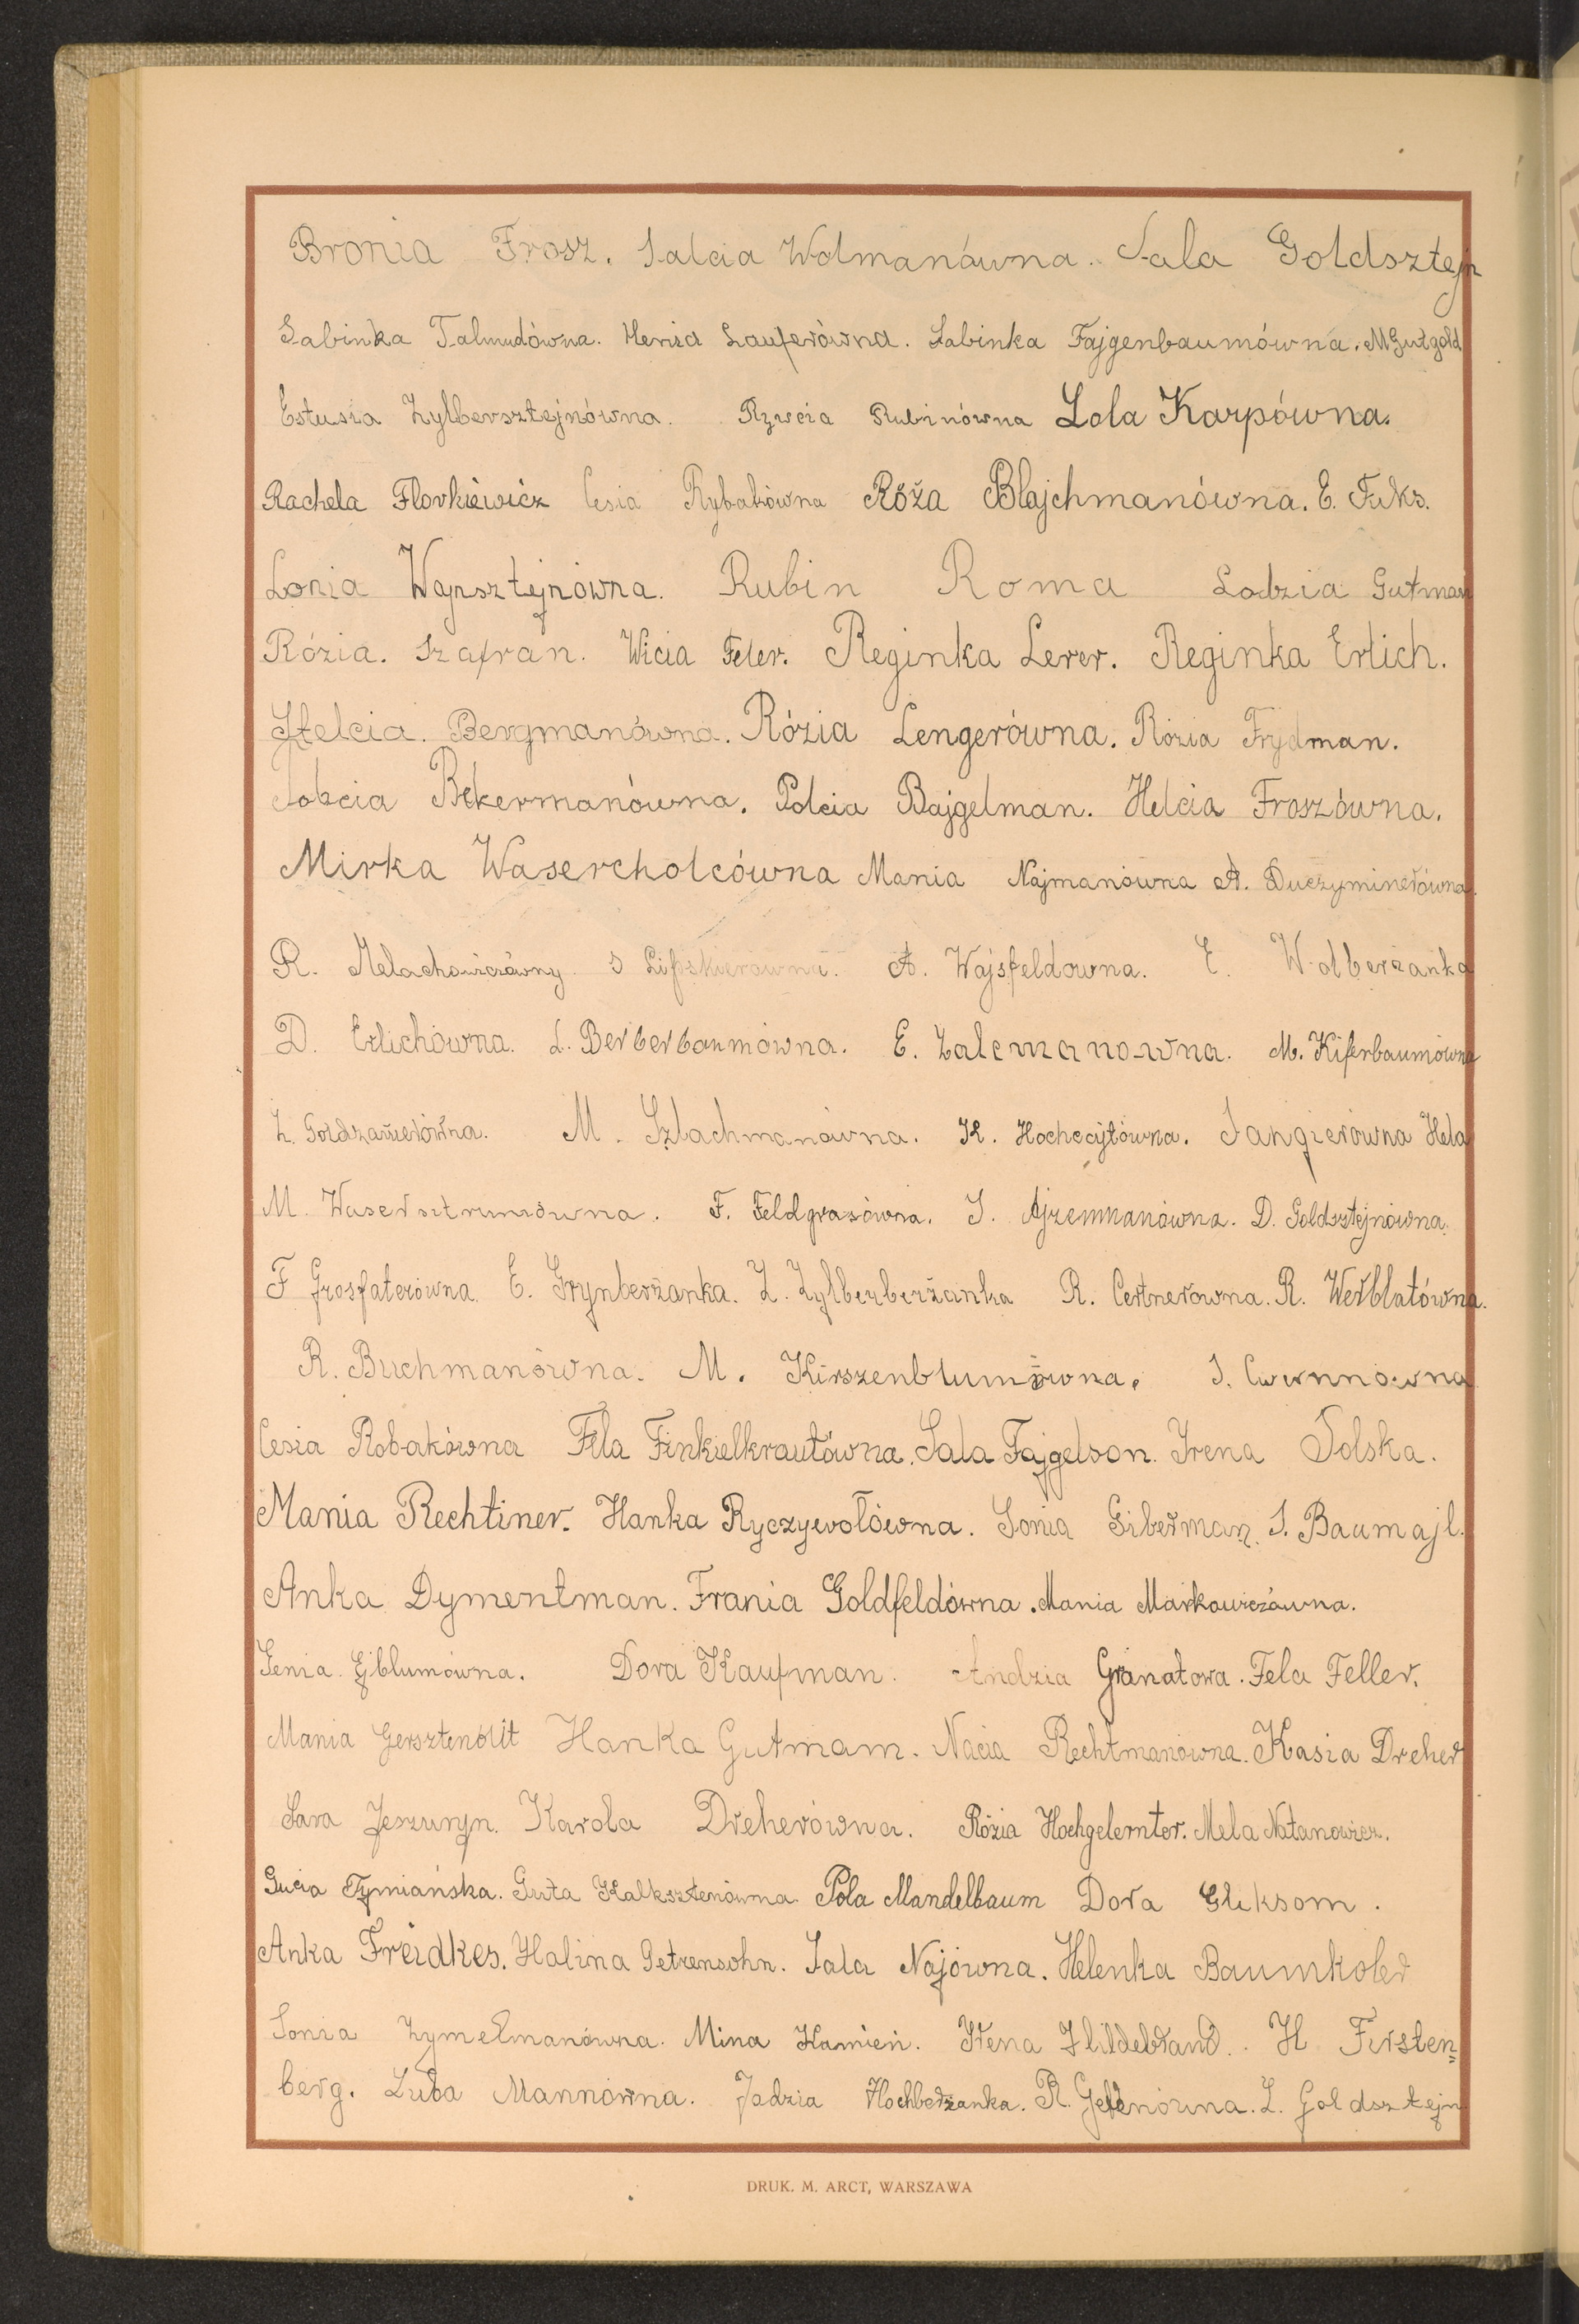 Bronia Frosz. Salcia Wolmanówna. Sala Goldsztejn
Sabinka Talmudówna. Henia Lauferówna. Sabinka Fajgenbaumówna. M Gutgold
Estusia Zylbersztejnówna. Rywcia Rubinówna Lola Karpówna.
Rachela Florkiewicz Cesia Rybakówna Róża Blajchmanówna. E. Fuks.
Lonia Wajnsztejnówna. Rubin Roma Lodzia Gutman
Rózia. Szafran. Wicia Feler. Reginka Lerer. Reginka Erlich.
Helcia. Bergmanówna. Rózia Lengerówna. Rózia Frydman.
Tobcia Bekermanówna. Polcia Bajgelman. Helcia Froszówna.
Mirka Wasercholcówna Mania Najmanówna A. Duczyminerówna.
R. Melachowiczówny S Lifskierówna. A. Wajsfeldowna. E. Wolberżanka
D. Erlichówna. L. Berberbaumówna. E. Zalcmanowna. M. Kiferbaumówna
Z. Goldzamerówna. M. Szlachmanówna. K. Hochcajtówna. Tangierówna Hela
M. Wasersztrumówna. F. Feldgrasówna. I. Ajzenmanówna. D. Goldsztejnówna.
F Grosfaterówna. E. Grynberżanka. Z. Zylberberżanka R. Certnerówna. R. Werblatówna.
R. Buchmanówna. M. Kirszenblumówna.
Cesia Robakówna Fela Finkielkrautówna. Sala Fajgelson. Irena Tolska.
Mania Rechtiner. Hanka Ryczywołówna. Sonia Giberman. S. Baumajl.
Anka Dymentman. Frania Goldfeldówna. Mania Markowiczówna.
Genia Ejblumówna. Dora Kaufman. Andzia Granatowa. Fela Feller.
Mania Gersztenblit Hanka Gutmam. Nacia Rechtmanówna. Kasia Dreher
Sara Jeszuryn. Karola Dreherówna. Rózia Hochgelernter. Mela Natanowicz.
Gucia Tymiańska. Guta Kalksztenówna. Pola Mandelbaum Dora Gliksom.
Anka Freidkes. Halina Getzensohn. Sala Najówna. Helenka Baumkoler
Sonia Zymelmanówna. Mina Kamień. Irena Hildebrand. H. Firsten-
berg. Luba Mannówna. Jadzia Hochberżanka. R. Gelenówna. L. Goldsztejn
DRUK. M. ARCT, WARSZAWA